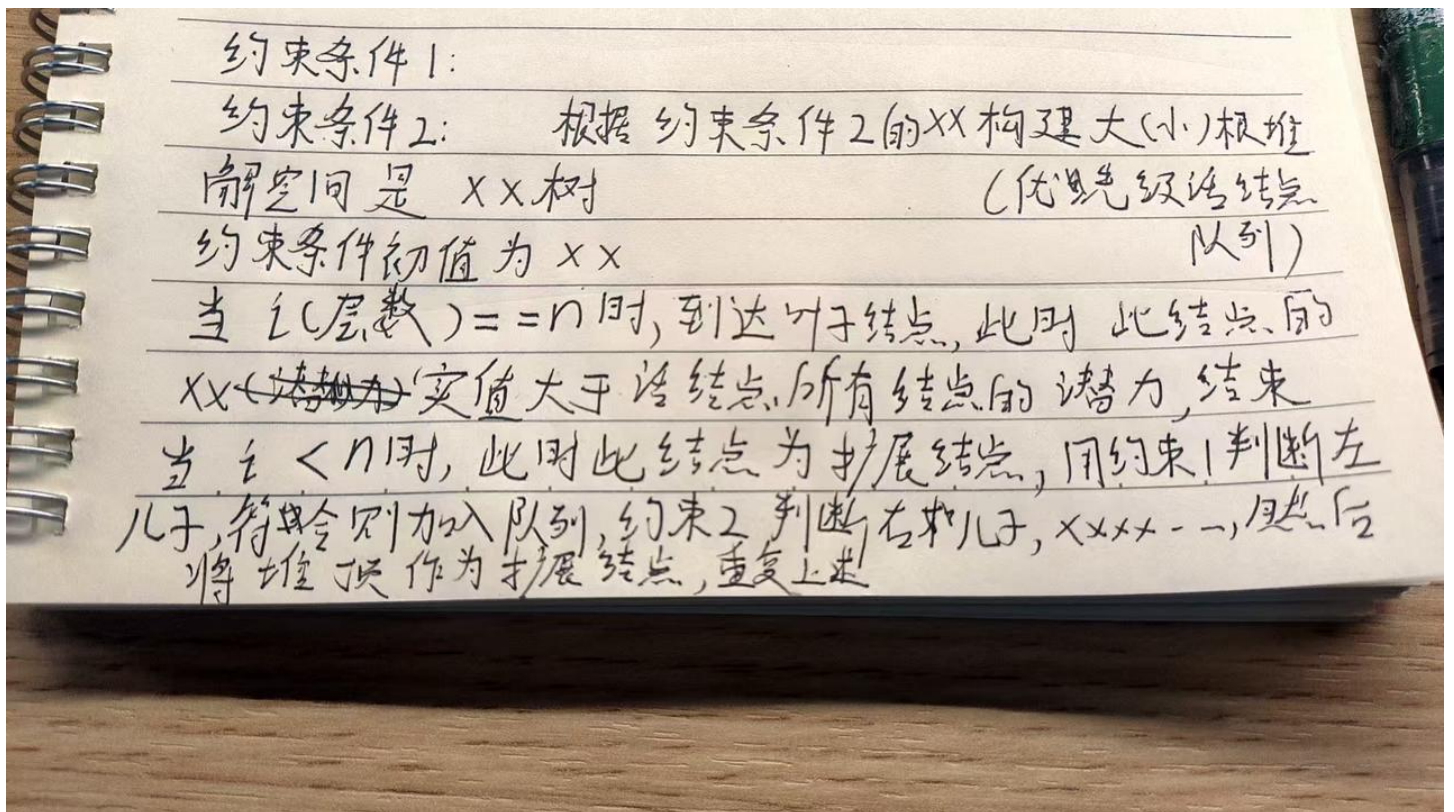 约束条件1:
约束条件2: 根据约束条件2的XX构建大(小)根堆
解空间是 XX树 (优先级活结点
约束条件初值为XX 队列)
当 i(层数)==n时,到达叶子结点,此时 此结点的
XX(潜力)实值大于活结点所有结点的潜力,结束
当 i<n时,此时此结点为扩展结点,用约束1判断左
儿子,符合则加入队列,约束2判断右儿子,XXXX--,然后
将堆顶作为扩展结点,重复上述